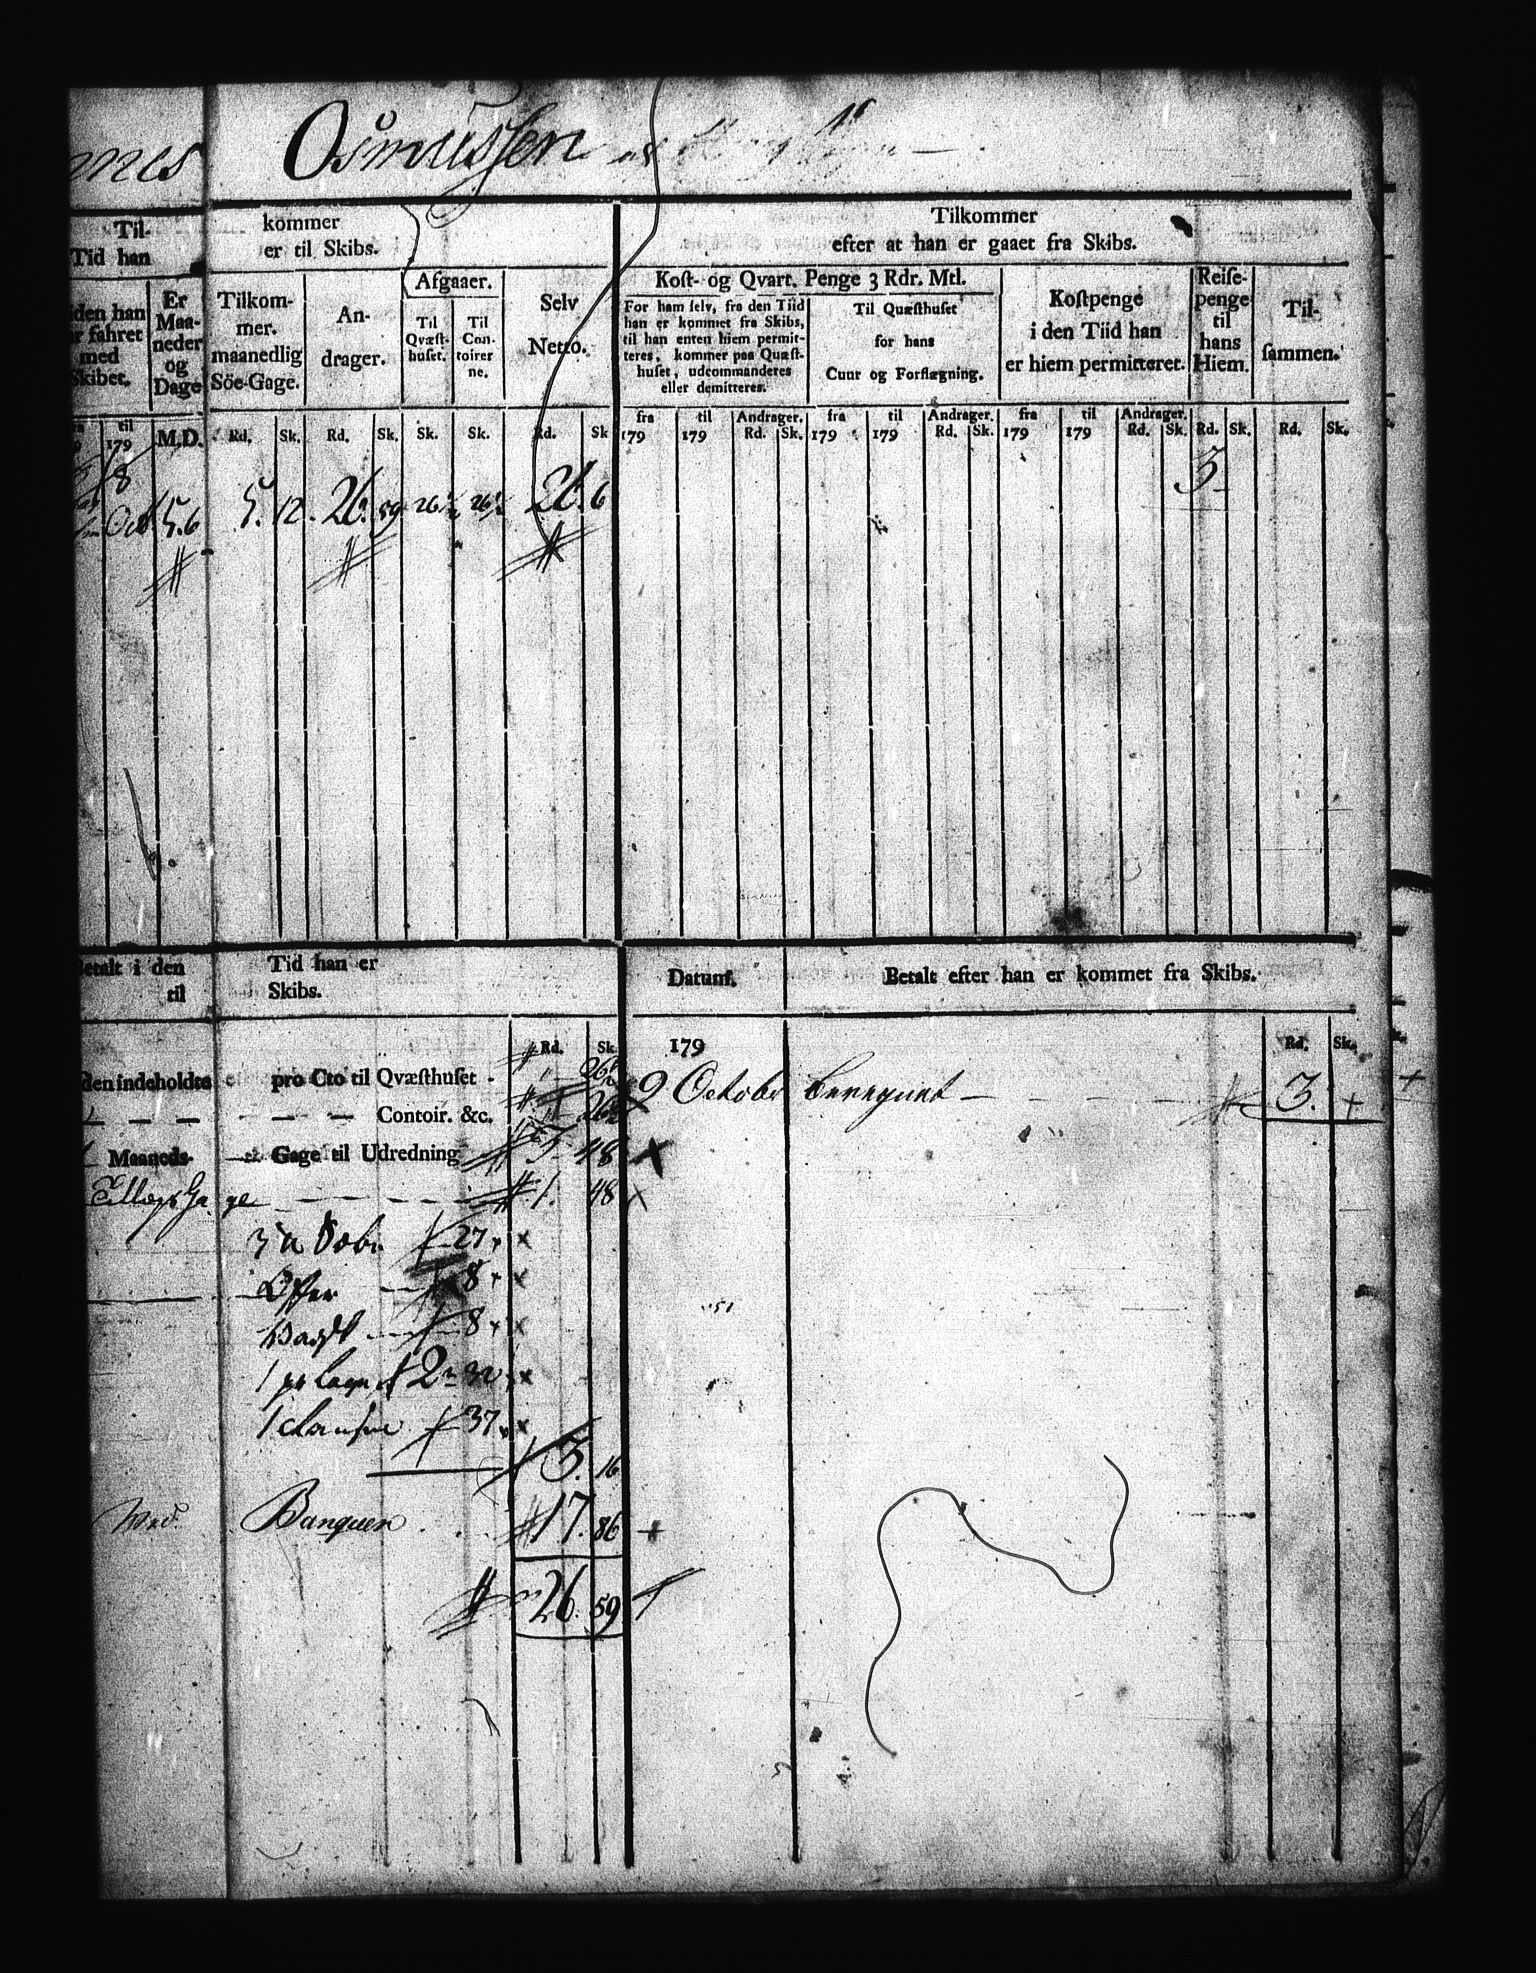 mes Osmussen
Til- kommer
Tid han er til Skibs.
Tilkommer
efter at han er gaaet fra Skibs.
iden han
r fahret
med
Skibet.
Er
Maa-
neder
og
Dage
Tilkom-
mer.
maanedlig
Söe-Gage.
An-
drager.
Afgaaer.
Til
Qvæst-
huset.
Til
Con-
toirer
ne.
Selv
Netto.
Kost- og Qvart. Penge 3 Rdr. Mtl.
For ham selv, fra den Tiid
han er kommet fra Skibs,
til han enten hiem permit-
teres, kommer paa Quæst-
huset, udcommanderes
eller demitteres.
Til Quæsthuset
for hans
Cuur og Forflægning.
Kostpenge
i den Tiid han
er hiem permitteret.
Reise-
penge
til
hans
Hiem.
Til-
sammen.
til fra til Andrager. fra til Andrager. fra til Andrager.
179 M.D. Rd. Sk. Rd. Sk. Sk. Sk. Rd. Sk 179 179 Rd. Sk. 179 179 Rd. Sk. 179 179 Rd. Sk. Rd. Sk. Rd. Sk.
8/ Oct 5.6 5. 12. 26. 59 26½ 26½ 26. 6 3-
Betalt i den Tid han er
til Skibs.
Datum.
Betalt efter han er kommet fra Skibs.
Rd. Sk. 179 Rd. Sk.
den indeholdte pro Cto til Qvæsthuset - " 26½
9 October beregnet — 3.
— — — Contoir. &c. " 26½
Maaneds- Gage til Udredning 5 48
Tillægs Gage 1. 48
27
Offer 8
Vagt 8
2 " 32
37
5. 16
Banquen 17. 86
26. 59